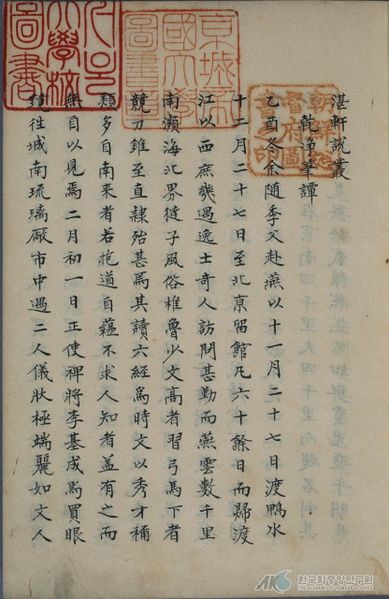 湛軒說叢
乾淨筆譚
乙酉冬余隨季父赴燕以十一月二十七日渡鴨水
十二月二十七日至北京留館凡六十餘日而歸渡
江以西庶幾遇逸士奇人訪問甚勤而燕雲數千里
南瀕海北界㺚子風俗椎魯少文高者習弓馬下者
競刀錐至直隸殆甚焉其讀六經爲時文以秀才稱
類多自南来者若抱道自蘊不求人知者盖有之而
無自以見焉二月初一日正使裨將李基成爲買眼
鏡往城南琉璃廠市中遇二人儀狀極端麗如文人
朝鮮總督府圖書之印
京城帝國大學圖書章
大學校圖書
AKS 한국학중앙연구원